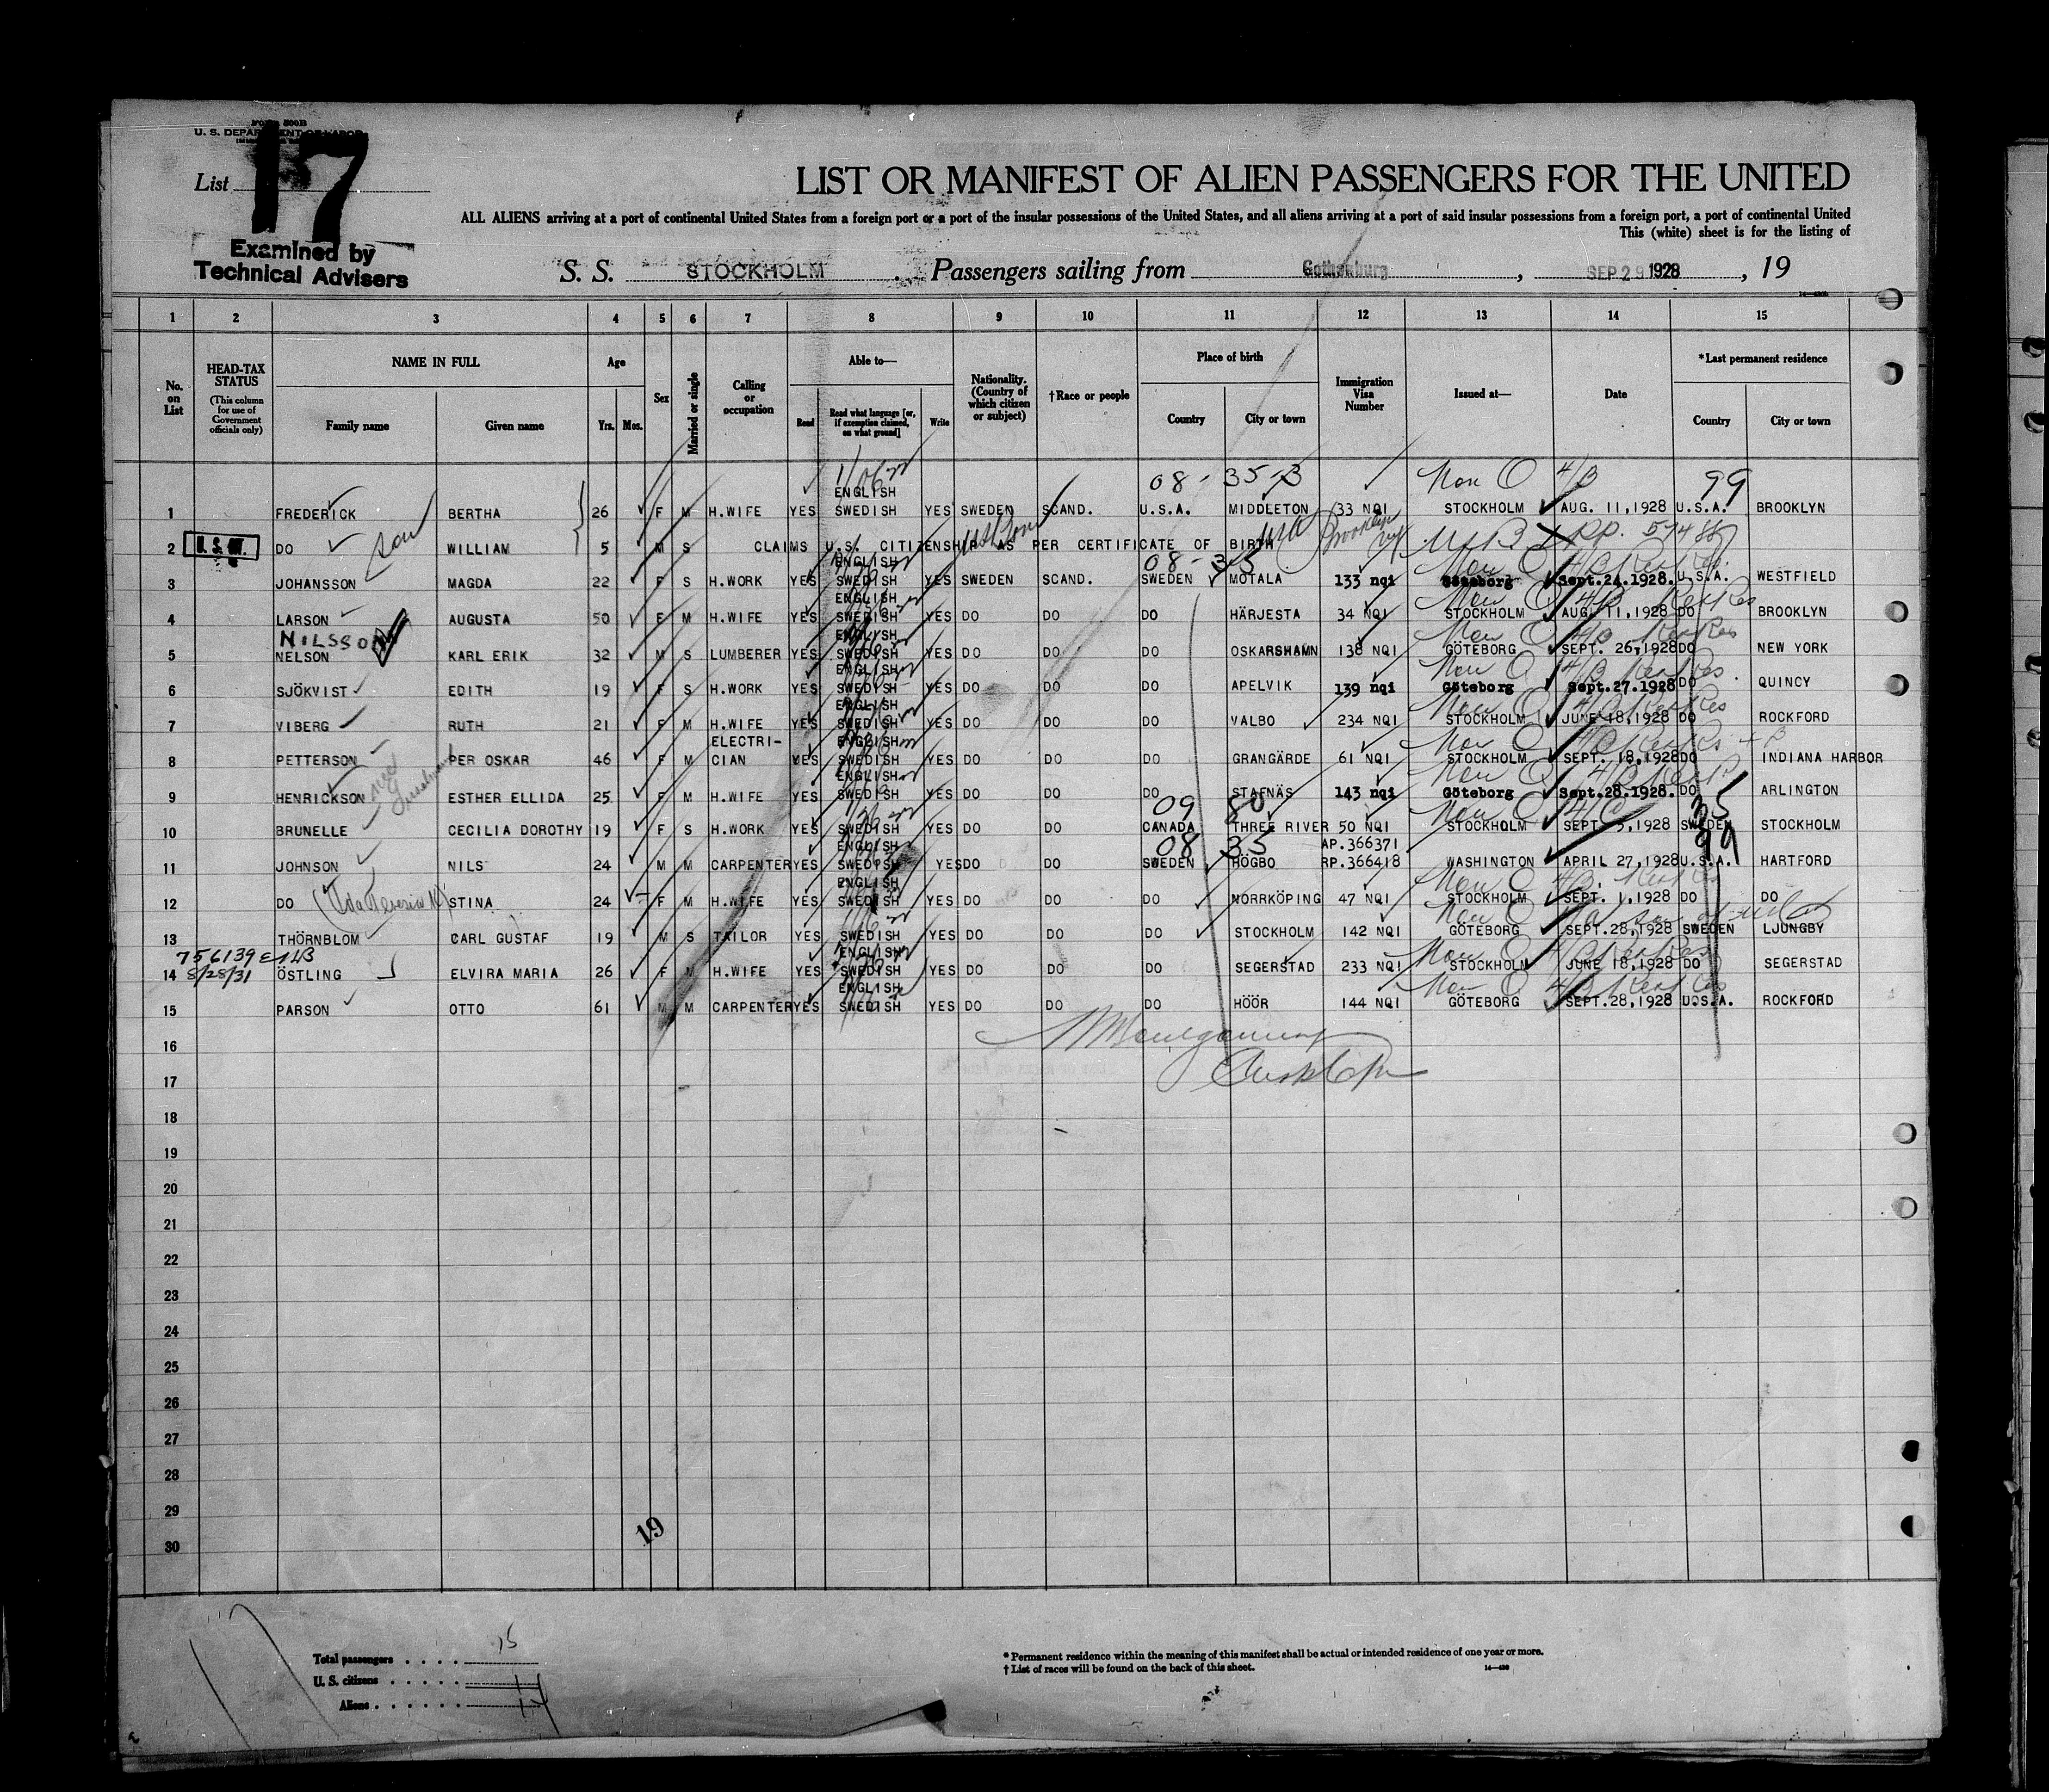 FORM 500B
U. S. DEPARTMENT OF LABOR
List 17
Examined by
Technical Advisers
LIST OR MANIFEST OF ALIEN PASSENGERS FOR THE UNITED
ALL ALIENS arriving at a port of continental United States from a foreign port or a port of the insular possessions of the United States, and all aliens arriving at a port of said insular possessions from a foreign port, a port of continental United
This (white) sheet is for the listing of
S. S. STOCKHOLM . Passengers sailing from Gothenburg , SEP 29 1928 , 19
1 2 3 4 5 6 7 8 9 10 11 12 13 14 15
No. on List
HEAD-TAX STATUS
(This column for use of Government officials only)
NAME IN FULL
Family name Given name
Age
Yrs. Mos.
Sex
Married or single
Calling or occupation
Able to—
Read Read what language [or, if exemption claimed, on what ground] Write
Nationality. (Country of which citizen or subject)
†Race or people
Place of birth
Country City or town
Immigration Visa Number
Issued at—
Date
*Last permanent residence
Country City or town
08 - 35-B Non Q 4/B 99
ENGLISH
1 FREDERICK BERTHA 26 F M H.WIFE YES SWEDISH YES SWEDEN SCAND. U.S.A. MIDDLETON 33 NQI STOCKHOLM AUG. 11,1928 U.S.A. BROOKLYN
2 DO son WILLIAM 5 M S CLAIMS U.S. CITIZENSHIP AS PER CERTIFICATE OF BIRTH USA Brooklyn
08-35
ENGLISH
3 JOHANSSON MAGDA 22 F S H.WORK YES SWEDISH YES SWEDEN SCAND. SWEDEN MOTALA 133 nqi Göteborg Sept.24.1928. U.S.A. WESTFIELD
ENGLISH
4 LARSON AUGUSTA 50 F M H.WIFE YES SWEDISH YES DO DO DO HÄRJESTA 34 NQI STOCKHOLM AUG. 11,1928 DO BROOKLYN
NILSSON
ENGLISH
5 NELSON KARL ERIK 32 M S LUMBERER YES SWEDISH YES DO DO DO OSKARSHAMN 138 NQI GÖTEBORG SEPT. 26,1928 DO NEW YORK
ENGLISH
6 SJÖKVIST EDITH 19 F S H.WORK YES SWEDISH YES DO DO DO APELVIK 139 nqi Göteborg Sept.27.1928 DO QUINCY
ENGLISH
7 VIBERG RUTH 21 F M H.WIFE YES SWEDISH YES DO DO DO VALBO 234 NQI STOCKHOLM JUNE 18,1928 DO ROCKFORD
ELECTRI- ENGLISH
8 PETTERSON PER OSKAR 46 F M CIAN YES SWEDISH YES DO DO DO GRANGÄRDE 61 NQI STOCKHOLM SEPT. 18,1928 DO INDIANA HARBOR
ENGLISH
9 HENRICKSON ESTHER ELLIDA 25 F M H.WIFE YES SWEDISH YES DO DO DO STAFNÄS 143 nqi Göteborg Sept.28.1928. DO ARLINGTON
09 80 35
10 BRUNELLE CECILIA DOROTHY 19 F S H.WORK YES SWEDISH YES DO DO CANADA THREE RIVER 50 NQI STOCKHOLM SEPT. 5,1928 SWEDEN STOCKHOLM
08 35 99
ENGLISH AP.366371
11 JOHNSON NILS 24 M M CARPENTER YES SWEDISH YES DO DO SWEDEN HÖGBO RP.366418 WASHINGTON APRIL 27,1928 U.S.A. HARTFORD
ENGLISH
12 DO STINA 24 F M H.WIFE YES SWEDISH YES DO DO DO NORRKÖPING 47 NQI STOCKHOLM SEPT. 1,1928 DO DO
13 THÖRNBLOM CARL GUSTAF 19 M S TAILOR YES SWEDISH YES DO DO DO STOCKHOLM 142 NQI GÖTEBORG SEPT.28,1928 SWEDEN LJUNGBY
756139
ENGLISH
14 8/28/31 ÖSTLING ELVIRA MARIA 26 F M H.WIFE YES SWEDISH YES DO DO DO SEGERSTAD 233 NQI STOCKHOLM JUNE 18,1928 DO SEGERSTAD
ENGLISH
15 PARSON OTTO 61 M M CARPENTER YES SWEDISH YES DO DO DO HÖÖR 144 NQI GÖTEBORG SEPT.28,1928 U.S.A. ROCKFORD
16
17
18
19
20
21
22
23
24
25
26
27
28
29
30
19
Total passengers . . . . 15
U. S. citizens . . . . . 1
Aliens . . . . . . 14
* Permanent residence within the meaning of this manifest shall be actual or intended residence of one year or more.
† List of races will be found on the back of this sheet.